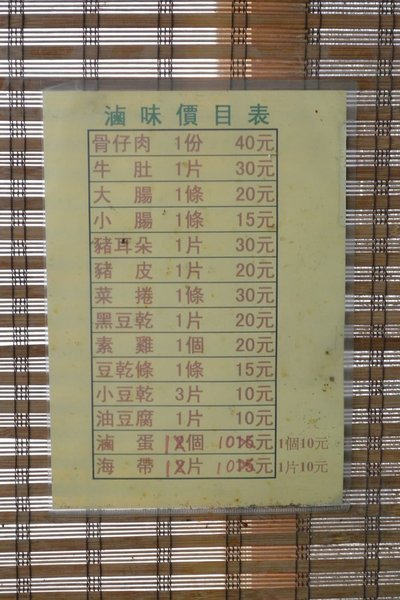 滷味價目表
骨仔肉 1份 40元
牛肚 1片 30元
大腸 1條 20元
小腸 1條 15元
豬耳朵 1片 30元
豬皮 1片 20元
菜捲 1條 30元
黑豆乾 1片 20元
素雞 1個 20元
豆乾條 1條 15元
小豆乾 3片 10元
油豆腐 1片 10元
滷蛋 1個 10元 1個10元
海帶 1片 10元 1片10元